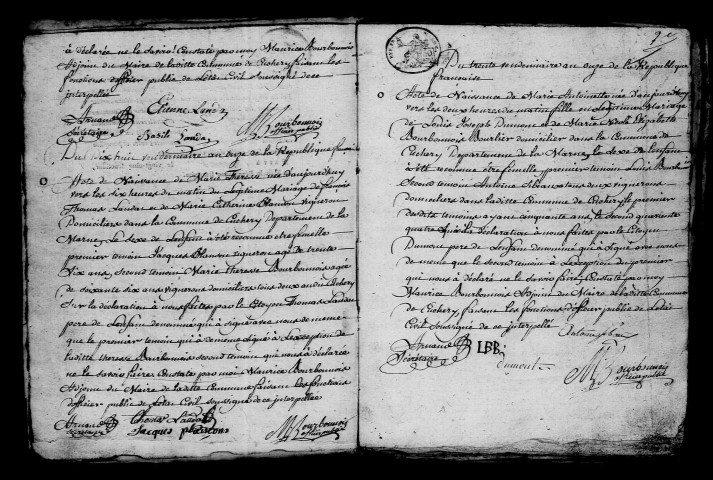 à déclarée ne le Savoir Constate par moy Maurice Bourbonnois
adjoin du Maire de laditte Commune de Cuchery faisant les
fonctions dofficier public de Letat Civil Soussigné de ce
interpellé
Etienne
Arnaud MBourbonnois
Secretaire Basile officier public
Du dix huit vendemiaire an onze de la Republique francaise
Acte de Naissance de Marie Therese née daujourdhuy
vers les six heures du matin du Legitime Mariage de francois
Thomas Landat et de Marie Catherine vigneron
Domiciliers dans la Commune de Cuchery Departement de la
Marne, Le Sexe de Lenfant à été reconnue etre femelle
premier temoin Jacques vigneron agé de trente
Six ans, second temoin Marie Theresse Bourbonnois agée
de soixante six ans vignerons domiciliers tous deux audit Cuchery
Sur la declaration à nous faites par le Citoyen Thomas Landat
pere de Lenfant denommé qui à Signé avec nous de meme
que le premier temoin qui à de meme Signé à Lexception de
laditte therese Bourbonnois second temoin qui nous à déclarée
ne le savoir faire Constate par moi Maurice Bourbonnois
Adjoin du Maire de laditte Commune faisant les fonctions
dofficier public de Letat Civil soussigné de ce interpellee
Arnaud Thomas Landat MBourbonnois
Secretaire Jacques officier public
Du trente vendemiaire an onze de la Republique
francaise
Acte de Naissance de Marie Antoinette née daujourdhuy
vers les deux heures du matin fille en Legitime Mariage
de Louis Joseph Dumont et de Marie Elizabette
Bourbonnois Bourlier domicilier dans la Commune de
Cuchery Departement de la Marne, le Sexe de Lenfant
à été reconnue etre femelle, premier temoin Louis
Second temoin Antoine tous deux vignerons
domiciliers dans laditte Commune de Cuchery le premier
desdits temoins ayant cinquante ans, le Second quarente
quatre Sur la déclaration à nous faites par le Citoyen
Dumont pere de Lenfant denommé qui à Signé avec nous
de meme que le second temoin à Lexception du premier
qui nous à déclaré ne le savoir faire, Constate par moy
Maurice Bourbonnois Adjoin du Maire de laditte Commune
de Cuchery faisant les fonctions dofficier public de Letat
Civil Soussigné de ce interpellé
Antoine
Arnaud LBB
Secretaire dumont MBourbonnois
officier public